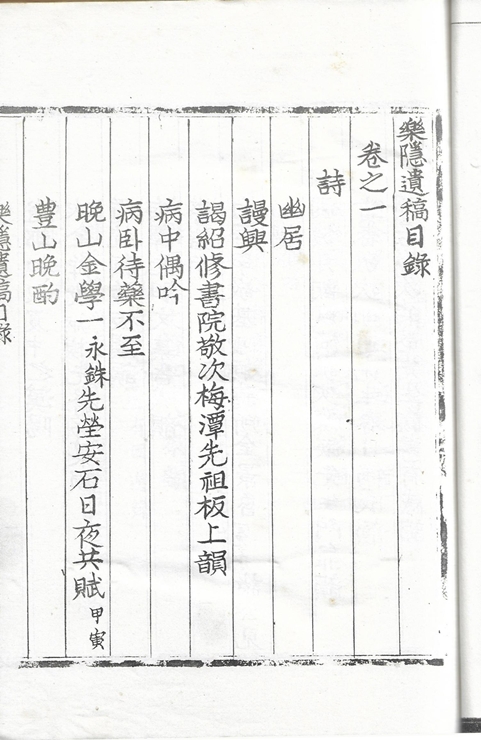 樂隱遺稿目錄
卷之一
詩
幽居
謾興
謁紹修書院敬次梅潭先祖板上韻
病中偶吟
病卧待藥不至
晚山金學一永銖先塋安石日夜共賦甲寅
豊山晚酌
樂隱遺稿目錄